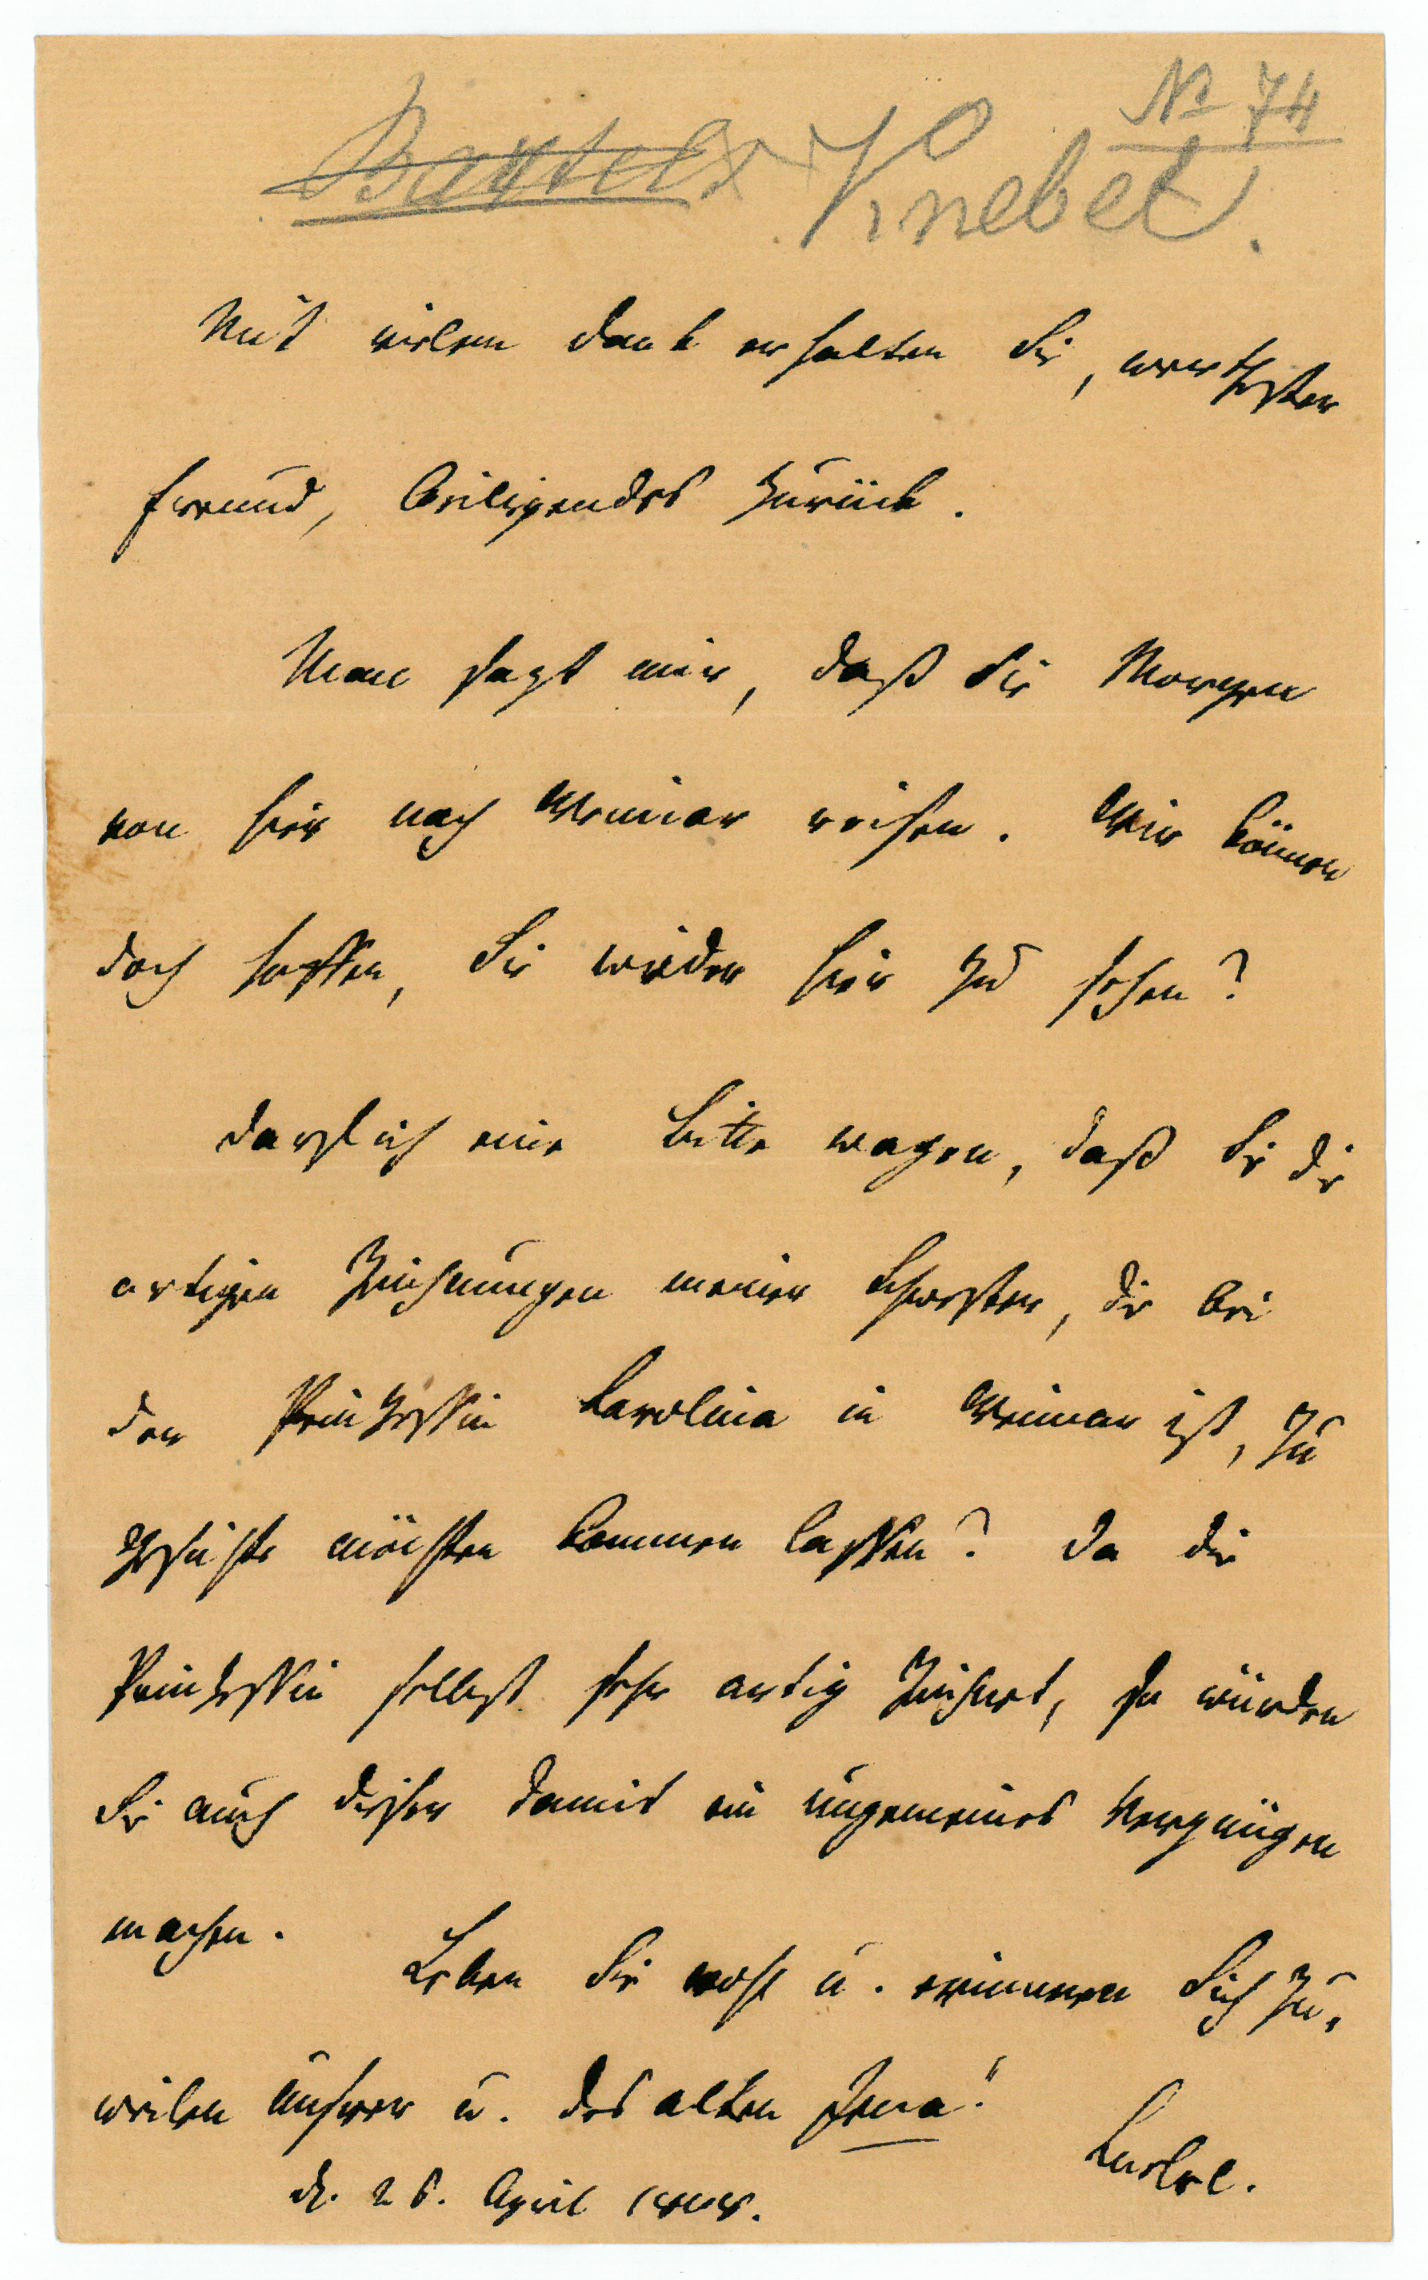 No 74
Knebel.
Mit vielem Dank erhalten Sie, werthester
Freund, beiliegendes zurück.
Man sagt mir, daß Sie Morgen
von hier nach Weimar reisen. Wir können
doch hoffen, Sie wieder hier zu sehen?
Darf ich eine Bitte wagen, daß Sie die
artigen Zeichnungen meiner Schwester, die bei
der Prinzessin Carolina in Weimar ist, zu
Gesichte möchten kommen lassen? Da die
Prinzessin selbst sehr artig zeichnet, so würden
Sie auch dieser damit ein ungemeines Vergnügen
machen.
Leben Sie wohl u. erinnern Sich zu,
weilen unsrer u. des alten Jena!
Knebel.
d. 26. April